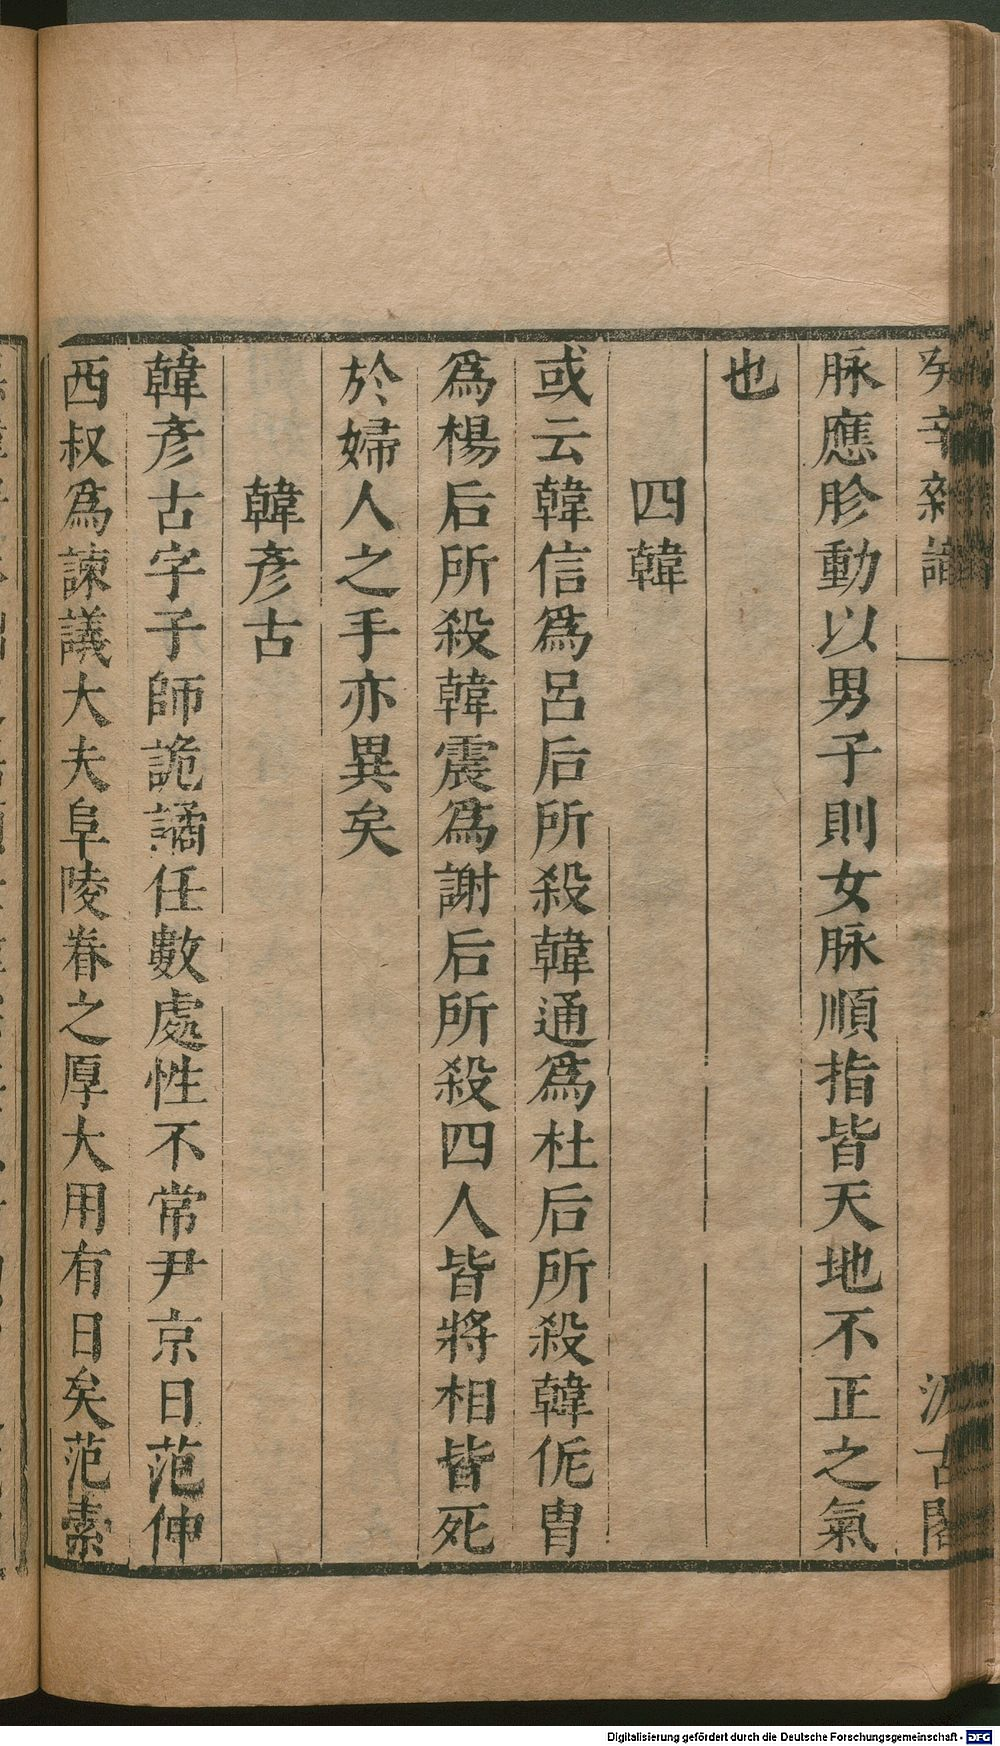 癸辛雜識
汲古閣
脉應胗動以男子則女脉順指皆天地不正之氣
也
四韓
或云韓信爲呂后所殺韓通爲杜后所殺韓侂胄
爲楊后所殺韓震爲謝后所殺四人皆將相皆死
於婦人之手亦異矣
韓彥古
韓彥古字子師詭譎任數處性不常尹京日范仲
西叔爲諫議大夫阜陵眷之厚大用有日矣范素
Digitalisierung gefördert durch die Deutsche Forschungsgemeinschaft - DFG